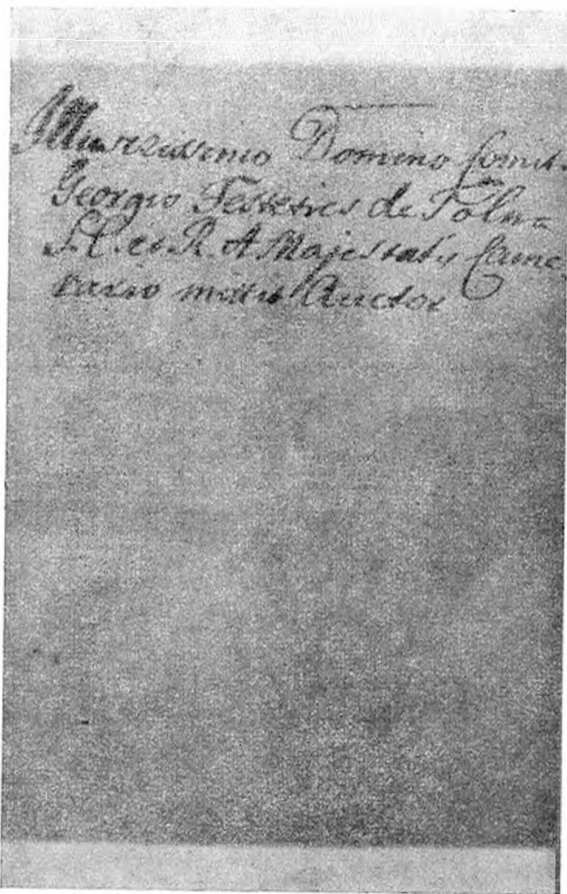 Illustrissimo Domino Comit
Georgio Festetics de Tolna
S. C. et R. A Majestatis Came
rario mittit Auctor